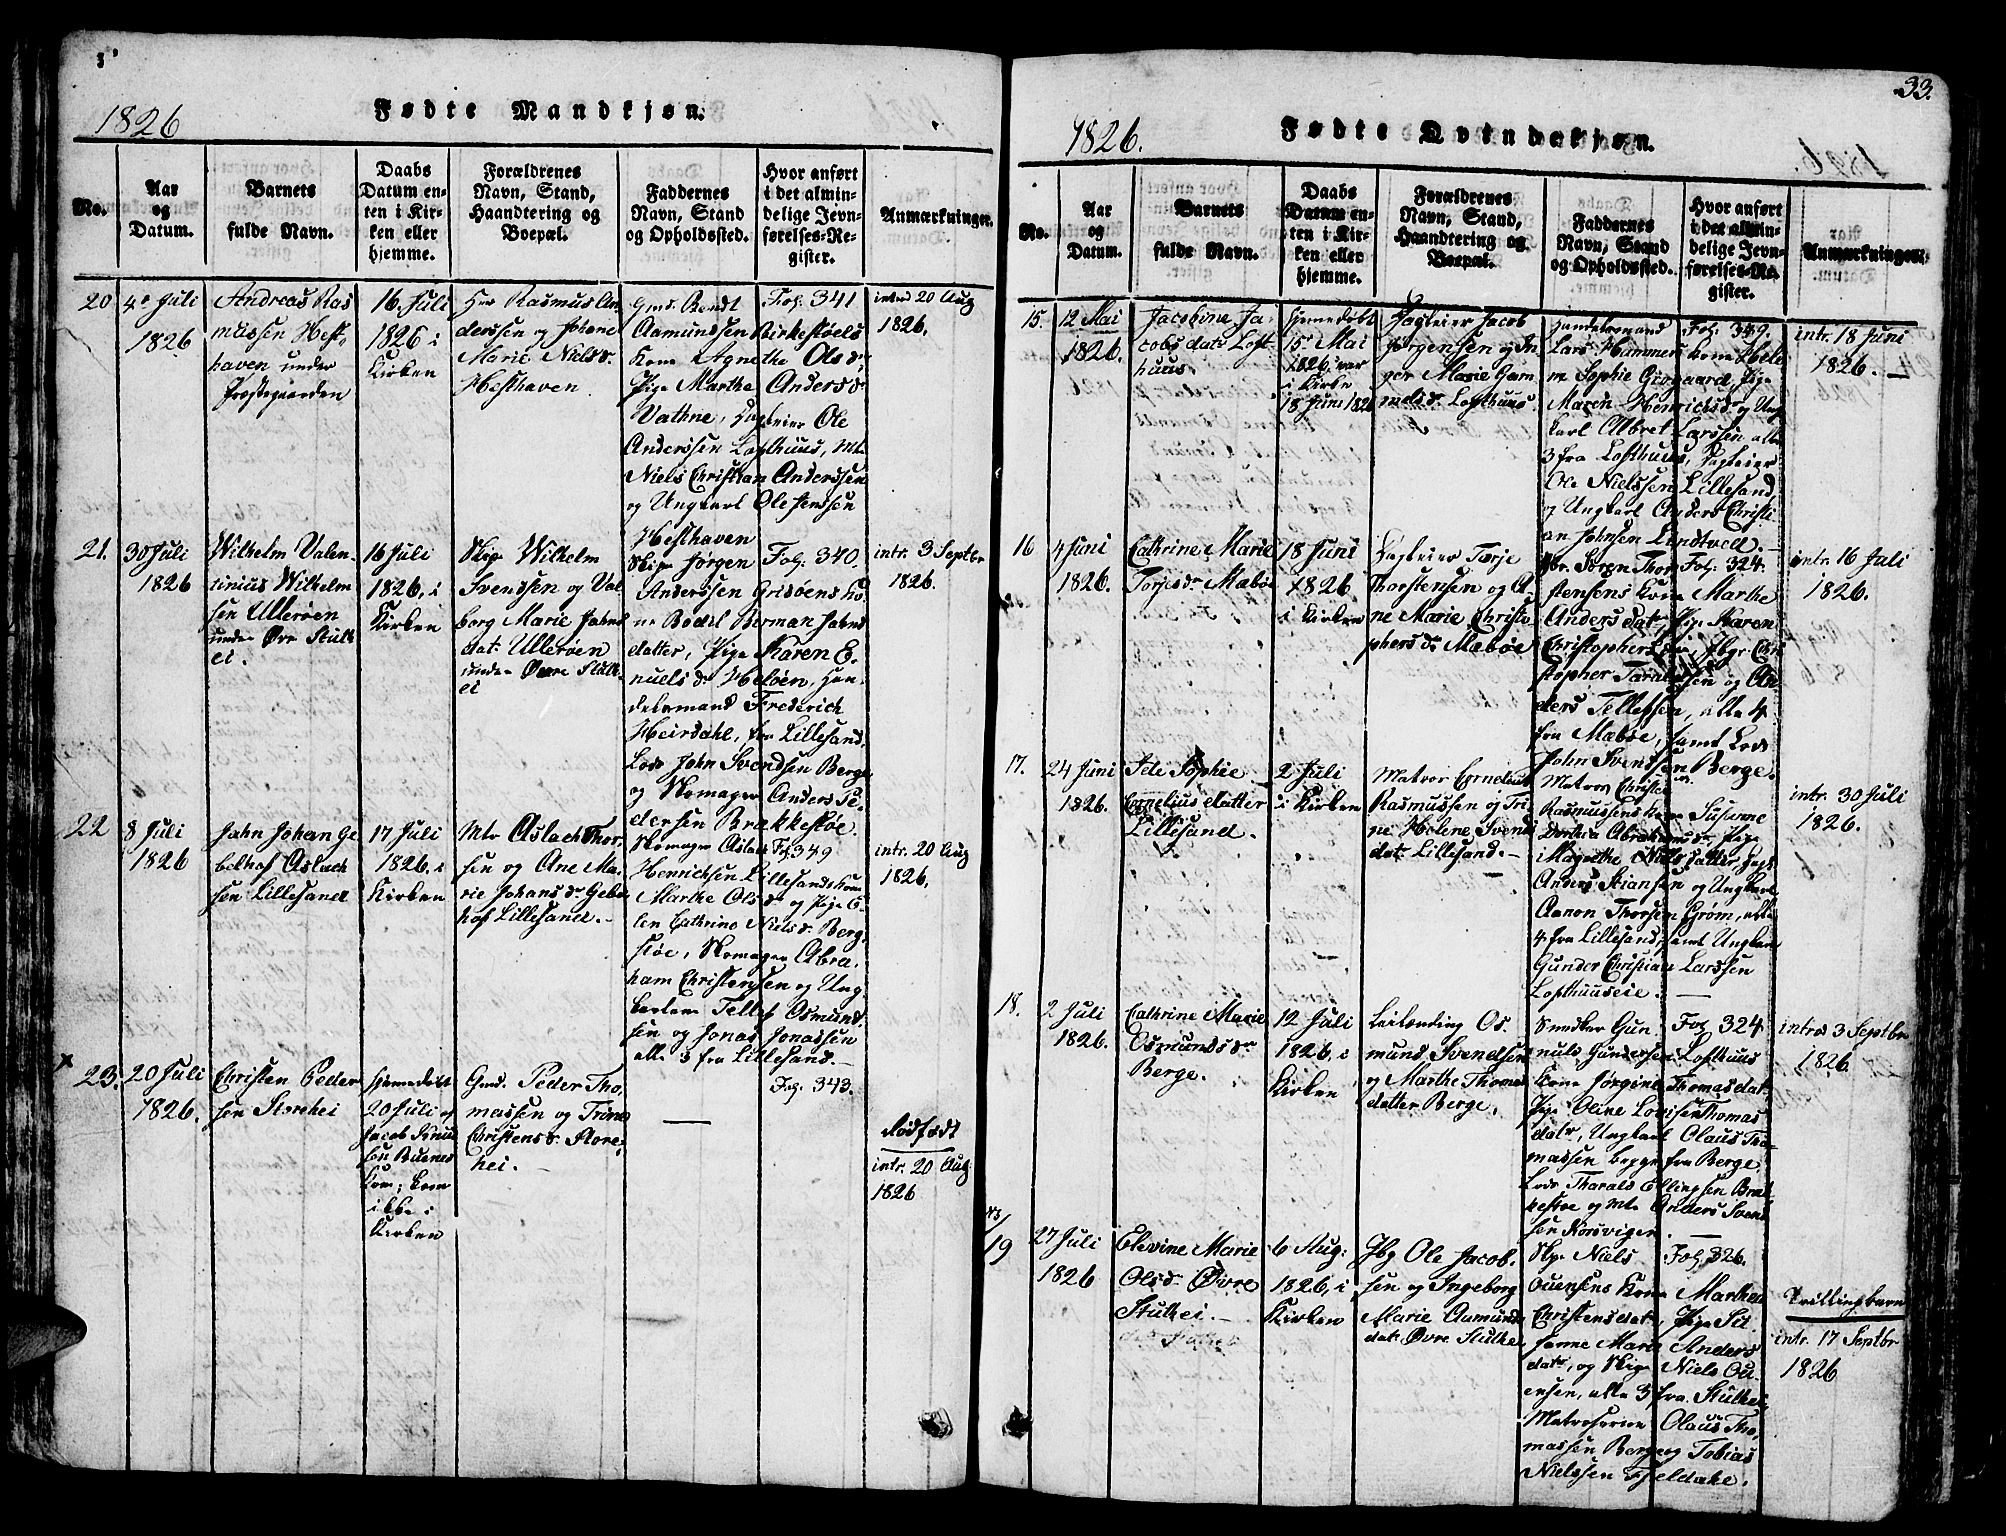 1826
Fødte Mandkjøn.
No.
Aar
og
Datum.
Barnets
fulde Navn.
Daabs
Datum en-
ten i Kir-
ken eller
hjemme.
Forældrenes
Navn, Stand,
Haandtering og
Boepæl.
Faddernes
Navn, Stand
og Opholdssted.
Hvor anført
i det almin-
delige Jevn-
førelses-Re-
gister.
Anmærkninger.
20
4de Juli
1826
Andreas Ras
mussen Hest,
haven under
Præstegaarden
16 Juli
1826 i
Kirken
Hr Rasmus An,
derssen og Johane
Marie Nielsdr
Hesthaven
Gmd. Bendt
Aamundsen Kirkestøels
Kone Agnethe Olsdr
Pige Marthe Andersdr
Vathne, Dagleier Ole
Anderssen Lofthuus, Mt.
Niels Christian Anderssen
og Ungkarl Ole Jenssen
Hesthaven
Fol. 341
intrd 20 Aug
1826.
21.
30 Juli
1826
Wilhelm Valen-
tinius Wilhelm
sen Ullerøen
under Øvre Stult
ei.
16 Juli
1826, i
Kirken
Skip Wilhelm
Svendsen og Val
borg Marie Jahns
dat. Ullerøen
under Øvre Stult
ei
Skip Jørgen
Anderssen Grisøens Ko
ne Bodel Berman Jahns
datter, Pige Karen E.
nuelsdr Heløen, Han-
delsmand Frederich
Heirdahl, fra Lillesand,
Lods John Svendsen Berge
og Skomager Anders Pe-
dersen Brækkestøe.
Fol. 340.
intr. 3 Septbr
1826.
22
8 Juli
1826
Jahn Johan Ge
belhof Aslach
sen Lillesand
17 Juli
1826. i
Kirken
Mtr Aslach Thor,
sen og Ane Ma,
rie Johansdr Gebel
hof Lillesand.-
Skomager Aslach
Henrichsen Lillesands Kone
Marthe Olsdr og Pige E-
len Cathrine Nielsdr Berg
støe, Skomager Abra,
ham Christensen og Ung
karlene Tellef Osmund,
sen og Jonas Jonassen
alle 3 fra Lillesand.-
Fol. 349
intr. 20 Aug
1826.
23.
20 Juli
1826.
Christen Peder
sen Storehei
hjemedøbt
20 Juli af
Jacob Knud
sen Buenes
Kone; kom
ikke i
Kirken
Gmd. Peder Tho,
massen og Trine
Christensdr Store,
hei.-
Fol. 343.
dødfødt
intr. 20 Aug.
1826
33.
1826.
Fødte Qvindekjøn.
No.
Aar
og
Datum.
Barnets
fulde Navn.
Daabs
Datum en-
ten i Kir-
ken eller
hjemme.
Forældrenes
Navn, Stand,
Haandtering og
Boepæl.
Faddernes
Navn, Stand
og Opholdssted.
Hvor anført
i det almin-
delige Jevn-
førelses-Re-
gister.
Anmærkninger.
15.
12 Mai
1826.
Jacobine Ja-
cobsdatr Loft
huus
hjemedøbt
15 Mai
1826, var
i Kirken
18 Juni 1826
Dagleier Jacob
Jørgensen og In
ger Marie Gam
melsdr Lofthuus
Handelsmand
Lars Hammers kone Hele
ne Sophie Girgaard, Pige
Maren Henrichsdr og Ung
karl Albret Larssen, alle
3 fra Lofthuus, Dagleier
Ole Nielssen Lillesand,
og Ungkarl Anders Christi
an Johnsen Lindtved.
Fol. 339.
intr. 18 Juni
1826.-
16
4 Juni
1826.
Cathrine Marie
Torjesdr Mæbøe
18 Juni
1826
i Kirken
Dagleier Torje
Thorstensen og A-
ne Marie Christo
phersdr Mæbøe
Sører Thor,
stensens Kone Marthe
Andersdatr, Pige Karen
Christophersdr, Jbgr Chri
stopher og An
ders Tellefsen, alle 4
fra Mæbøe, samt Lods
John Svendsen Berge.
Fol. 324.
intr. 16 Juli
1826.
17.
24 Juni
1826.
Ide Sophie
Cornelius datter
Lillesand.
2 Juli
i Kirken
Matros Cornelius
Rasmussen og Tri
ne Helene Svends
datr Lillesand.-
Matros Christen
Rasmussens Kone Susanne
Dorthea Abrahamsdr, Pige
Magrethe Nielsdatter, Dagl.
Anders Stiansen og Ungkarl
Aanon Thorsen Grøm, alle
4 fra Lillesand, samt Ungkarl
Gunder Christian Larssen
Lofthuuseie.
intr. 30 Juli
1826.
18.
2 Juli
1826.
Cathrine Marie
Osmundsdr
Berge.
12 Juli
1826, i
Kirken
Leilænding Os
mund Svendsen
og Marthe Thomas
datter Berge,
Snedker Gun
nuls Gundersen Lofthuus
kone Jørgine Thomasdatr
Pige Oline Lovise Thomas
datr, Ungkarl Olaus Tho
massen begge fra Berge,
Lods Tharald Ellingsen Bræk
kestøe og Mt. Anders Svend
sen Korsvigen.
Fol. 324
intrd 3 Septbr
1826.
19
27 Juli
1826
Elevine Marie
Olsdr Øvre
Stulhei.-
6 Aug:
1826, i
Kirken
Jbg Ole Jacob,
sen og Ingeborg
Marie Aamunds
datr Øvre Stulhei
Skp. Niels
Ouensens Kone Marthea
Christensdatr, Pige Sit
Janne Marie Anders
datr, og Skip Niels Ou
ensen, alle 3 fra Stulhei,
Matroserne Olaus Tho,
massen Berge og Tobias
Nielssen Fjeldahl.
Fol. 326.
Tvillingbarn
intr. 17 Septbr
1826